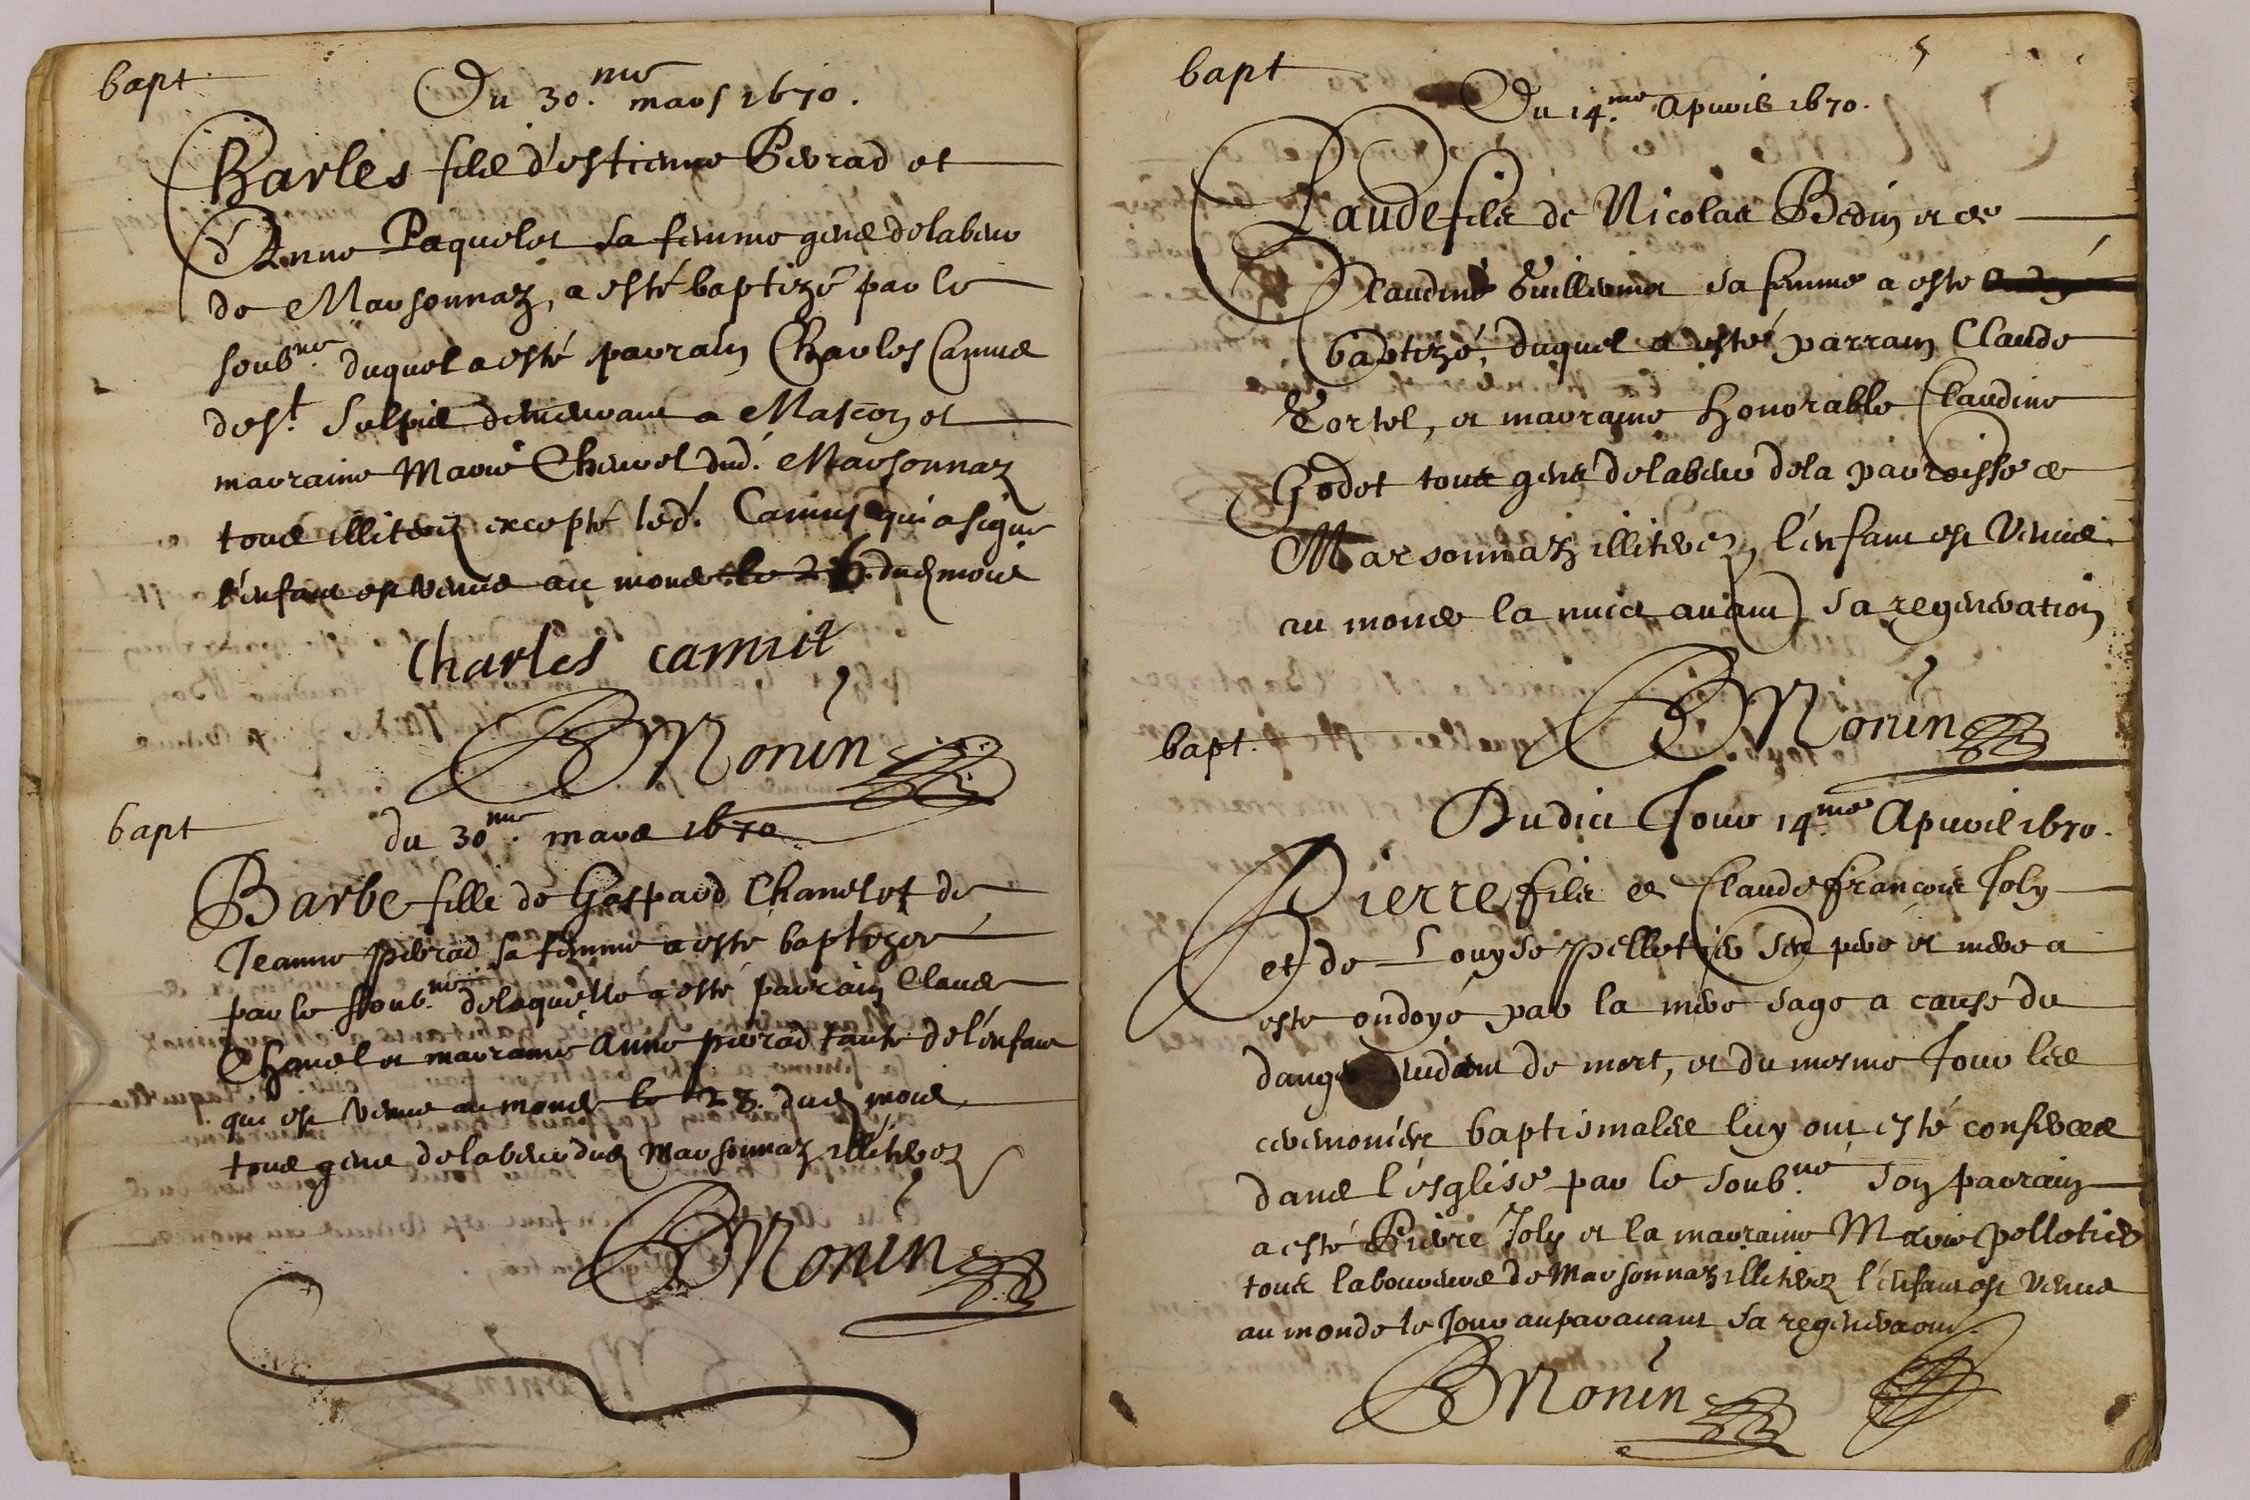 bapt
Du 30.me mars 1670.
Charles filz d'estienne Perrad et
d'Anne Paquelet sa femme gens de labeur
de Marsonnaz, a esté baptizé par le
soub.né duquel a esté parrain Charles Camus
de St. Sulpis demeurant a Mascon et
marraine Marie Chevrel dud. Marsonnaz
tous illiterez excepté led. Camus qui a signé
l'enfant est venus au monde le 26. dud mois
Charles camus
Monin
bapt
du 30me. mars 1670
Barbe fille de Gaspard Chanelet de
Jeanne perrad sa femme a esté baptizée
par le soub.né de laquelle a esté parrain Claude
Chanelet marraine Anne perrad tante de l'enfant
qui est venue au monde le 28. dud mois
tous gens de labeur dud Marsonnaz illiterez
Monin
5
bapt
Du 14.me Apuril 1670.
Claude filz de Nicolas Bedin et de
Claudine Guillermin sa femme a esté
baptizé, duquel a esté parrain Claude
Tortel, et marraine honorable Claudine
Godet tous gens de labeur de la parroisse de
Marsonnaz illiterez, l'enfant est venus
au monde la nuict auant sa regeneration
Monin
bapt.
Dudict Jour 14.me Apuril 1670.
Pierre filz de Claude françois Joly
et de Louyse pelletier ses pere et mere a
esté ondoyé par la mere sage a cause du
dang de mort, et du mesme Jour les
ceremonies baptismales luy ont esté conferees
dans l'esglise par le soub.né son parrain
a esté Pierre Joly et la marraine Marie pelletier
tous laboureurs de Marsonnaz illiterez l'enfant est venus
au monde le Jour auparauant sa regeneraon.
Monin